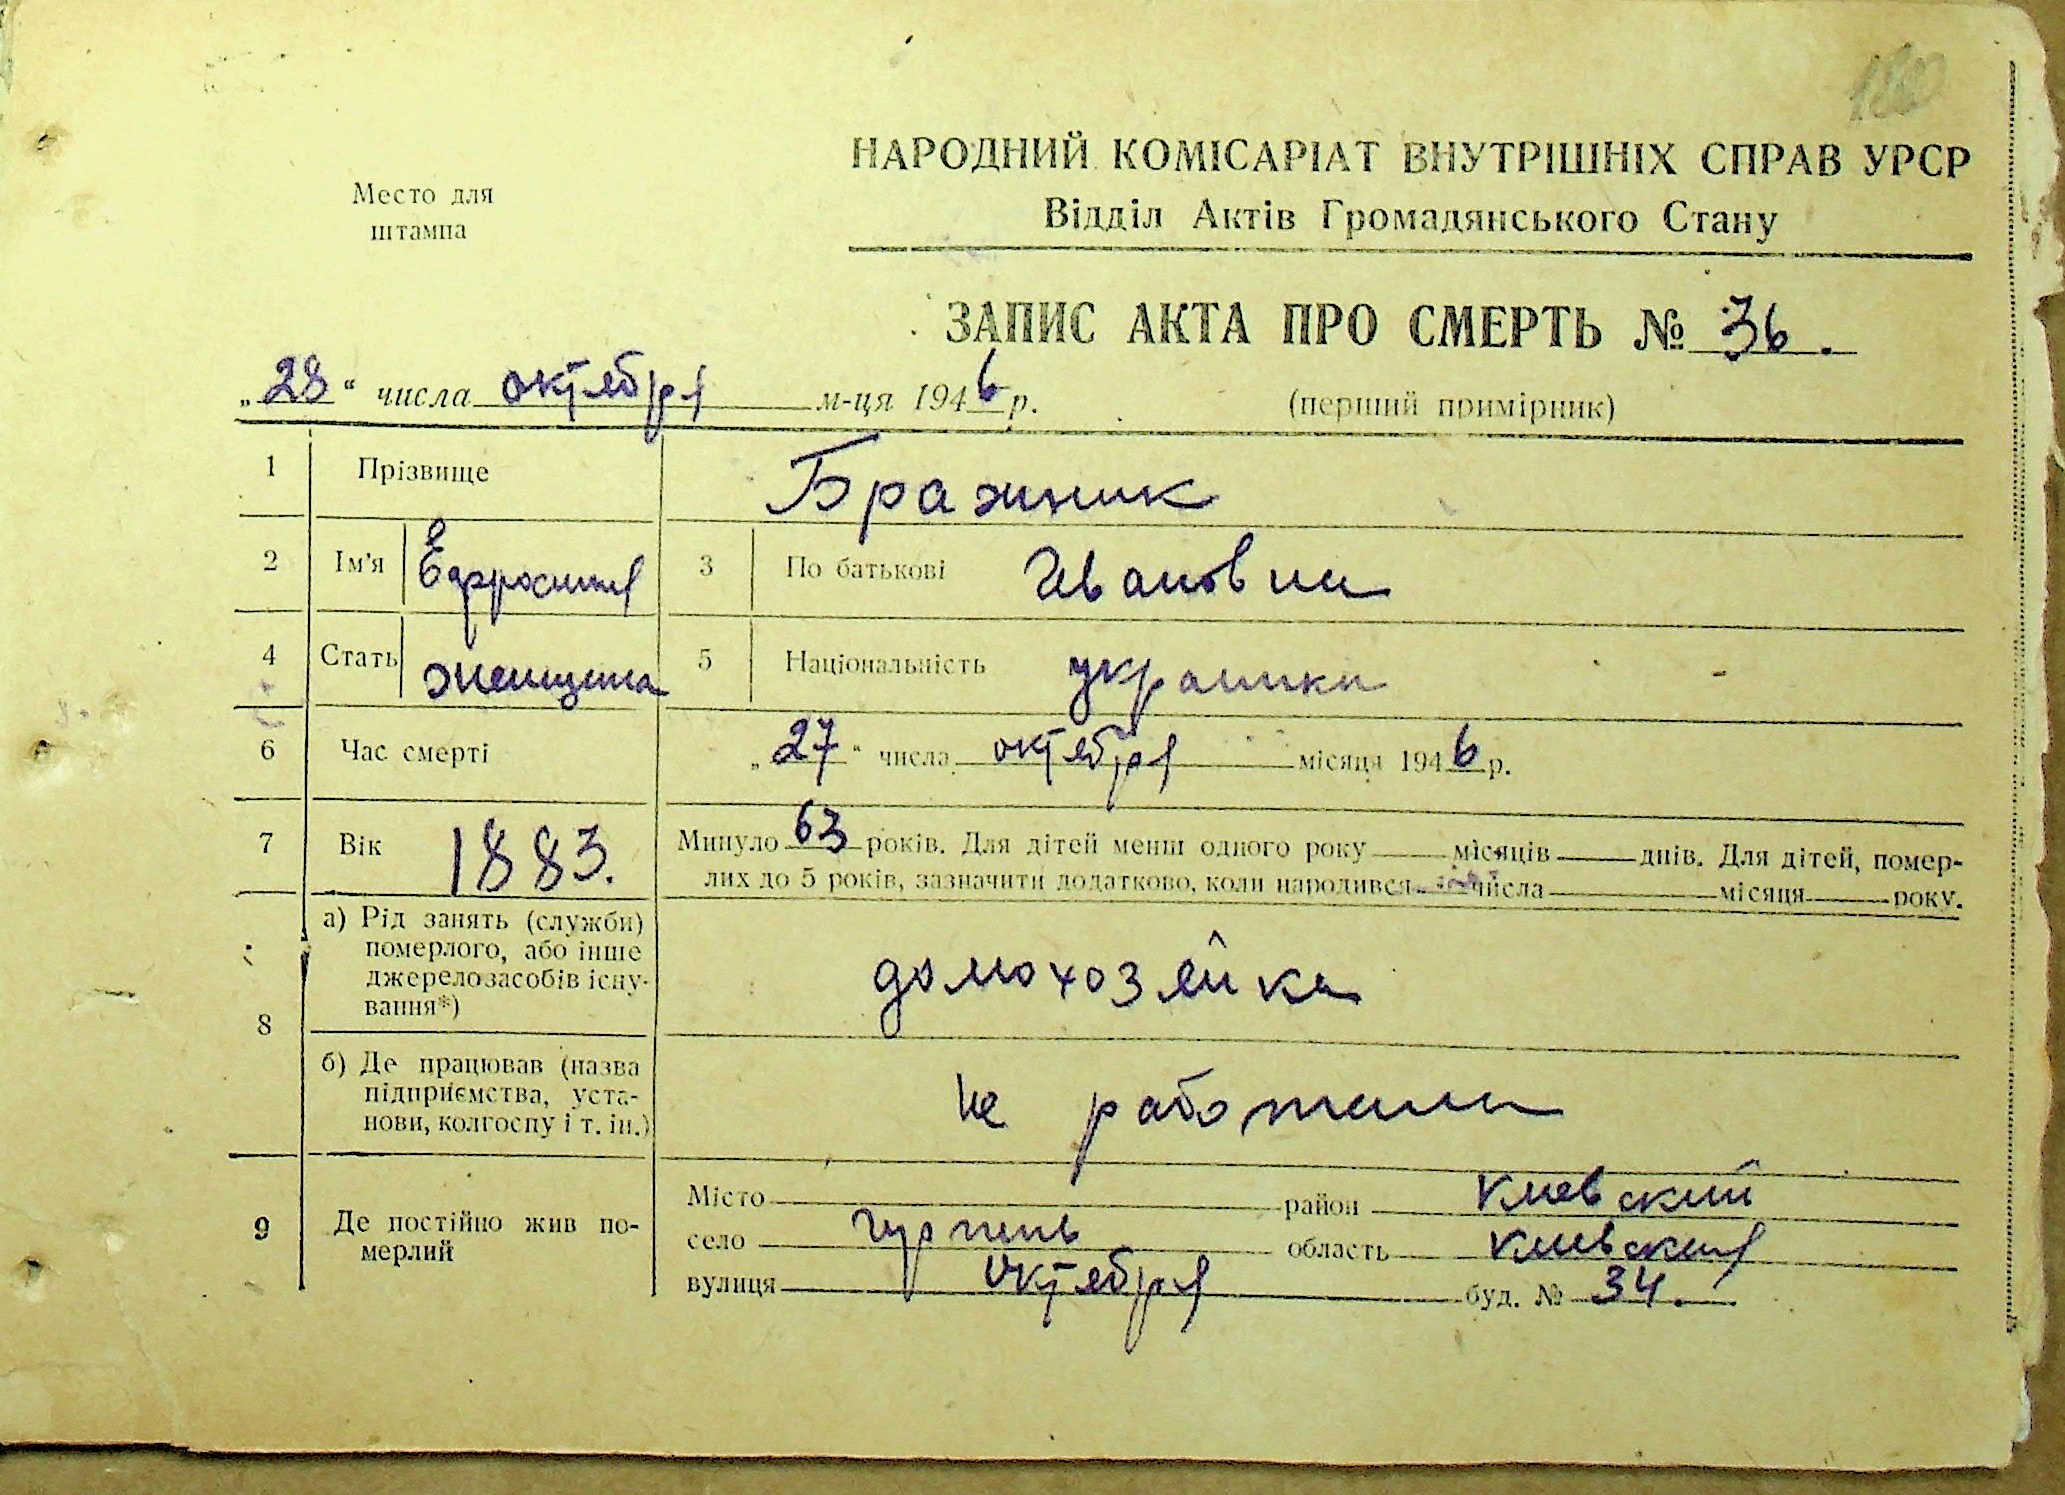 НАРОДНИЙ КОМІСАРІАТ ВНУТРІШНІХ СПРАВ УРСР
Место для штампа
Відділ Актів Громадянського Стану
ЗАПИС АКТА ПРО СМЕРТЬ № 36.
„28“ числа октября м-ця 1946 р.
(перший примірник)
1 Прізвище Бражник
2 Ім'я Ефросиния 3 По батькові Ивановна
4 Стать женщина 5 Національність украинка
6 Час смерті „27“ числа октября місяця 1946 р.
7 Вік 1883. Минуло 63 років. Для дітей менш одного року місяців днів. Для дітей, помер-
лих до 5 років, зазначити додатково, коли народився числа місяця року.
8 а) Рід занять (служби)
померлого, або інше
джерело засобів існу-
вання*)
домохозяйка
б) Де працював (назва
підприємства, уста-
нови, колгоспу і т. ін.)
не работала
9 Де постійно жив по-
мерлий
Місто район Киевский
село область Киевская
вулиця Октября буд. № 34.